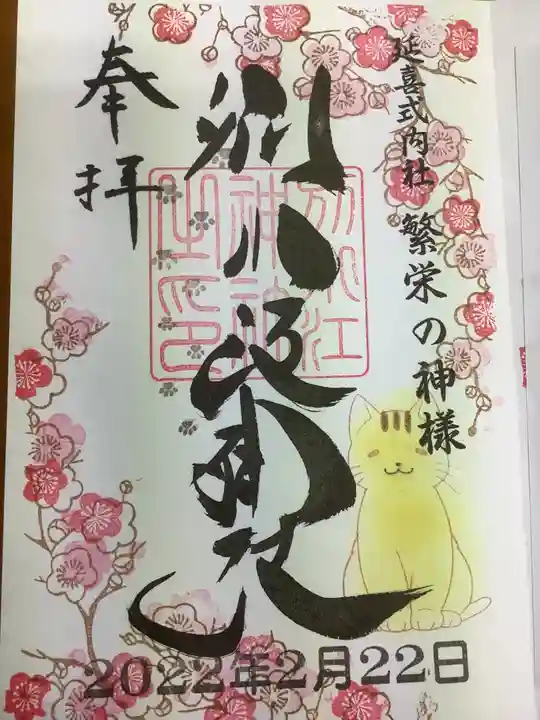 延喜式内社 繁栄の神様
別小江神社
別小江
神社
之印
奉拝
2022年2月22日